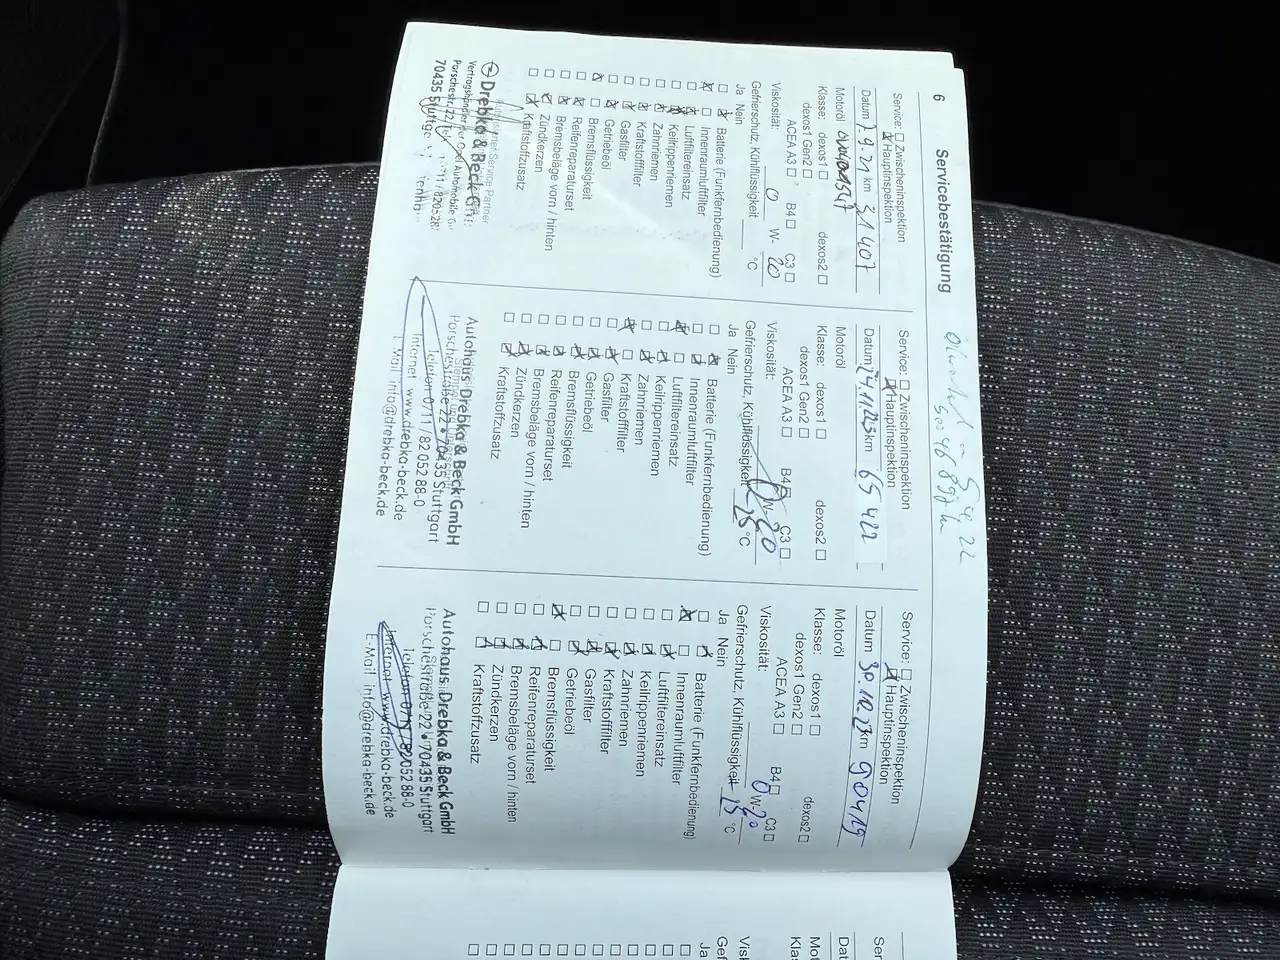 6
Servicebestätigung
Ölwechsel
5.4.22
Service: □ Zwischeninspektion
☒ Hauptinspektion
Datum 7.9.21 km 31407
Motoröl
Klasse: dexos1 □ dexos2 □
dexos1 Gen2 □
ACEA A3 □ B4 □ C3 □
Viskosität: 0 W- 20
Gefrierschutz, Kühlflüssigkeit °C
Ja Nein
□ ☒ Batterie (Funkfernbedienung)
☒ □ Innenraumluftfilter
□ ☒ Luftfiltereinsatz
□ ☒ Keilrippenriemen
□ ☒ Zahnriemen
□ ☒ Kraftstofffilter
□ ☒ Gasfilter
□ ☒ Getriebeöl
☒ □ Bremsflüssigkeit
□ ☒ Reifenreparaturset
□ ☒ Bremsbeläge vorn / hinten
□ ☒ Zündkerzen
□ ☒ Kraftstoffzusatz
Drebka & Beck
Vertragshändler der Opel Automobile
Porschestr. 22
70435 Stuttg
Service: □ Zwischeninspektion
☒ Hauptinspektion
Datum 24.11.22 km 65422
Motoröl
Klasse: dexos1 □ dexos2 □
dexos1 Gen2 □
ACEA A3 □ B4 □ C3 □
Viskosität: 0 W- 20
Gefrierschutz, Kühlflüssigkeit -25 °C
Ja Nein
□ ☒ Batterie (Funkfernbedienung)
□ ☒ Innenraumluftfilter
☒ □ Luftfiltereinsatz
□ ☒ Keilrippenriemen
□ ☒ Zahnriemen
☒ □ Kraftstofffilter
□ ☒ Gasfilter
□ ☒ Getriebeöl
□ ☒ Bremsflüssigkeit
□ ☒ Reifenreparaturset
□ ☒ Bremsbeläge vorn / hinten
□ ☒ Zündkerzen
□ ☒ Kraftstoffzusatz
Autohaus Drebka & Beck GmbH
Porschestraße 22 • 70435 Stuttgart
Telefon 0711 / 82 052 88-0
Internet www.drebka-beck.de
E-Mail info@drebka-beck.de
Service: □ Zwischeninspektion
☒ Hauptinspektion
Datum 30.10.23 km 90419
Motoröl
Klasse: dexos1 □ dexos2 □
dexos1 Gen2 □
ACEA A3 □ B4 □ C3 □
Viskosität: 0 W- 20
Gefrierschutz, Kühlflüssigkeit -25 °C
Ja Nein
□ ☒ Batterie (Funkfernbedienung)
☒ □ Innenraumluftfilter
□ ☒ Luftfiltereinsatz
□ ☒ Keilrippenriemen
□ ☒ Zahnriemen
□ ☒ Kraftstofffilter
□ ☒ Gasfilter
□ ☒ Getriebeöl
☒ □ Bremsflüssigkeit
□ ☒ Reifenreparaturset
□ ☒ Bremsbeläge vorn / hinten
□ ☒ Zündkerzen
□ ☒ Kraftstoffzusatz
Autohaus Drebka & Beck GmbH
Porschestraße 22 • 70435 Stuttgart
Telefon 0711 / 82 052 88-0
Internet www.drebka-beck.de
E-Mail info@drebka-beck.de
Ser
Dat
Mot
Klas
Visk
Gef
Ja